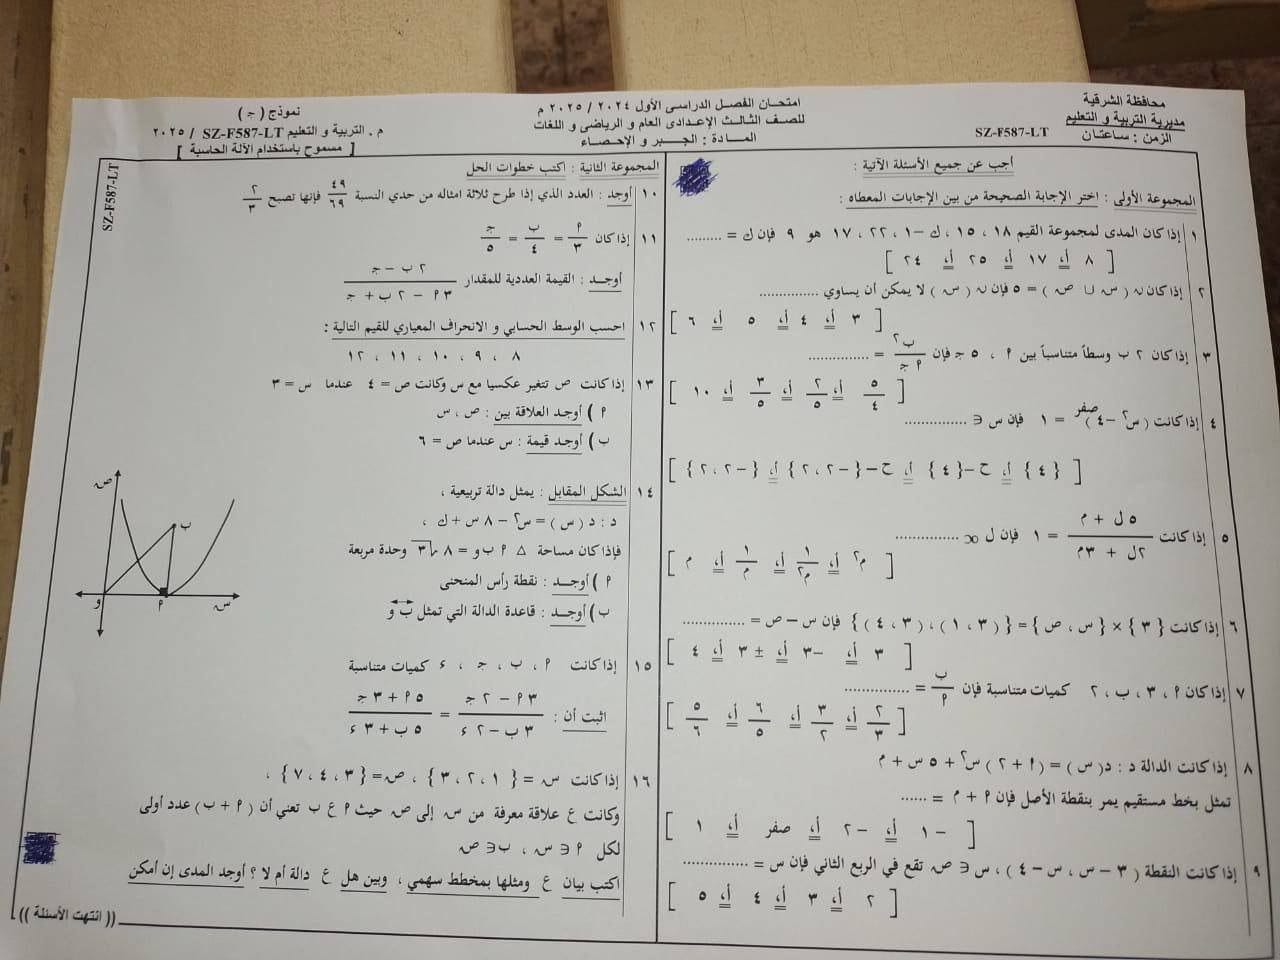 محافظة الشرقية
مديرية التربية و التعليم
الزمن : ساعتان
SZ-F587-LT
امتحان الفصل الدراسى الأول ٢٠٢٤ / ٢٠٢٥ م
للصف الثالث الإعدادى العام و الرياضى و اللغات
المادة : الجبر و الإحصاء
نموذج ( جـ )
م . التربية و التعليم SZ-F587-LT / ٢٠٢٥
[ مسموح باستخدام الآلة الحاسبة ]
أجب عن جميع الأسئلة الآتية :
المجموعة الأولى : اختر الإجابة الصحيحة من بين الإجابات المعطاه :
١ إذا كان المدى لمجموعة القيم ١٨ ، ١٥ ، ك – ١ ، ٢٢ ، ١٧ هو ٩ فإن ك = .........
[ ٨ أ، ١٧ أ، ٢٥ أ، ٢٤ ]
٢ إذا كان ن ( س ∪ ص ) = ٥ فإن ن ( س ) لا يمكن أن يساوي ...............
[ ٣ أ، ٤ أ، ٥ أ، ٦ ]
٣ إذا كان ٢ ب وسطاً متناسباً بين ٢م ، ٥ جـ فإن ب٢ / م جـ = ...............
[ ٥/٤ أ، ٢/٥ أ، ٣/٥ أ، ١٠ ]
٤ إذا كانت ( س٢ – ٤ )صفر = ١ فإن س ∈ ...............
[ {٤} أ، ح – {٤} أ، ح – {–٢ ، ٢} أ، {–٢ ، ٢} ]
٥ إذا كانت (٥ ل + م) / (٢ل + ٣م) = ١ فإن ل ∝ ...............
[ م٢ أ، ١/م٢ أ، ١/م أ، م ]
٦ إذا كانت {٣} × {س ، ص} = {(٣ ، ١) ، (٣ ، ٤)} فإن س – ص = ...............
[ ٣ أ، –٣ أ، ± ٣ أ، ٤ ]
٧ إذا كان م ، ٣ ، ب ، ٢ كميات متناسبة فإن ب/م = ...............
[ ٢/٣ أ، ٣/٢ أ، ٦/٥ أ، ٥/٦ ]
٨ إذا كانت الدالة د : د(س) = (م + ٢) س٢ + ٥ س + م
تمثل بخط مستقيم يمر بنقطة الأصل فإن م + م = ......
[ –١ أ، –٢ أ، صفر أ، ١ ]
٩ إذا كانت النقطة ( ٣ – س ، س – ٤ ) ، س ∈ ص تقع في الربع الثاني فإن س = ...............
[ ٢ أ، ٣ أ، ٤ أ، ٥ ]
SZ-F587-LT
المجموعة الثانية : اكتب خطوات الحل
١٠ أوجد : العدد الذي إذا طرح ثلاثة امثاله من حدي النسبة ٤٩/٦٩ فإنها تصبح ٢/٣
١١ إذا كان م/٣ = ب/٤ = جـ/٥
أوجد : القيمة العددية للمقدار (٢ ب – جـ) / (٣م – ٢ ب + جـ)
١٢ احسب الوسط الحسابي و الانحراف المعياري للقيم التالية :
٨ ، ٩ ، ١٠ ، ١١ ، ١٢
١٣ إذا كانت ص تتغير عكسيا مع س وكانت ص = ٤ عندما س = ٣
م ) أوجد العلاقة بين : ص ، س
ب ) أوجد قيمة : س عندما ص = ٦
١٤ الشكل المقابل : يمثل دالة تربيعية ،
د : د ( س ) = س٢ – ٨ س + ك ،
فإذا كان مساحة △ م ب و = ٨√٣ وحدة مربعة
م ) أوجد : نقطة رأس المنحنى
ب ) أوجد : قاعدة الدالة التي تمثل ب و
ص
ب
و
م
س
١٥ إذا كانت م ، ب ، جـ ، ء كميات متناسبة
اثبت أن : (٣م – ٢ جـ) / (٣ب – ٢ ء) = (٥م + ٣ جـ) / (٥ب + ٣ ء)
١٦ إذا كانت س = {١ ، ٢ ، ٣} ، ص = {٣ ، ٤ ، ٧} ،
وكانت ع علاقة معرفة من س إلى ص حيث م ع ب تعني أن ( م + ب ) عدد أولى
لكل م ∈ س ، ب ∈ ص
اكتب بيان ع ومثلها بمخطط سهمي ، وبين هل ع دالة أم لا ؟ أوجد المدى إن أمكن
(( انتهت الأسئلة ))